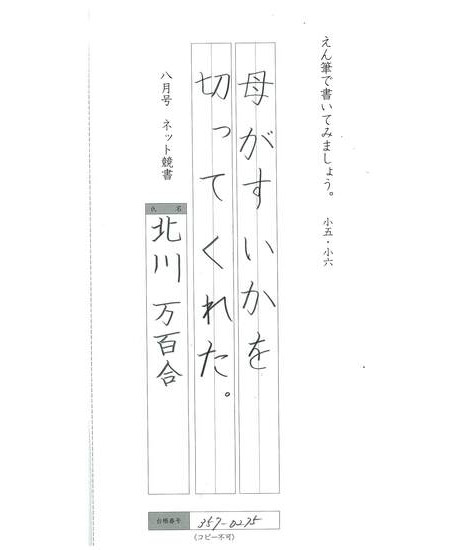 えん筆で書いてみましょう。 小五・小六
母がすいかを
切ってくれた。
八月号 ネット競書
氏名
北川 万百合
台帳番号 357-0275
(コピー不可)